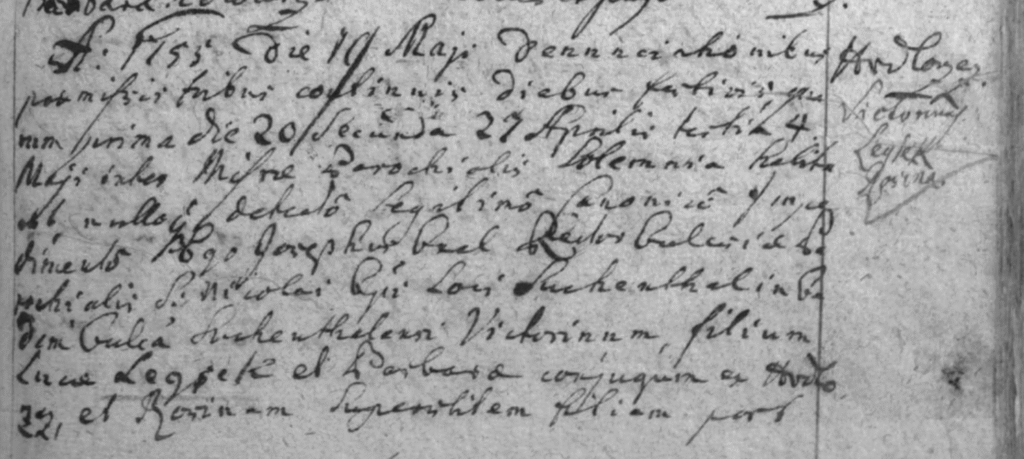 A: 1755 Die 19 Maji Denunciationibus
praemissis tribus continuis diebus festivis qua
rum prima die 20 Secunda 27 Aprilis tertia 4
Maji inter Missae Parochialis Solemnia habita
est nulloq detecto Legitimo Canonico Impe
dimento Ego Josephus Rector Ecclesiae Pa
rochialis S. Nicolai Epi Loci Suchenthal in ea
dem Ecclea Suchenthalensi Victorinum, filium
Lucae Legsek et Barbarae conjugum ex Hrdlo
zez, et Rosinam Superstitem filiam post
Hrdlorzez
Victorinus
Legsek
Rosina